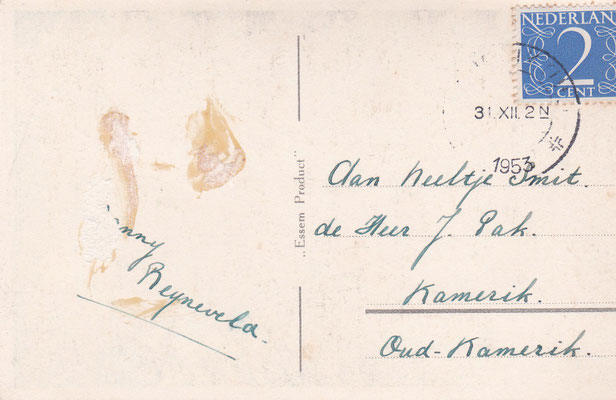 NEDERLAND
2
CENT
31.XII.2N
1953
Aan Neeltje Smit.
de Heer J. Pak.
Kamerik.
Oud-Kamerik.
„Essem Product"
Reyneveld.